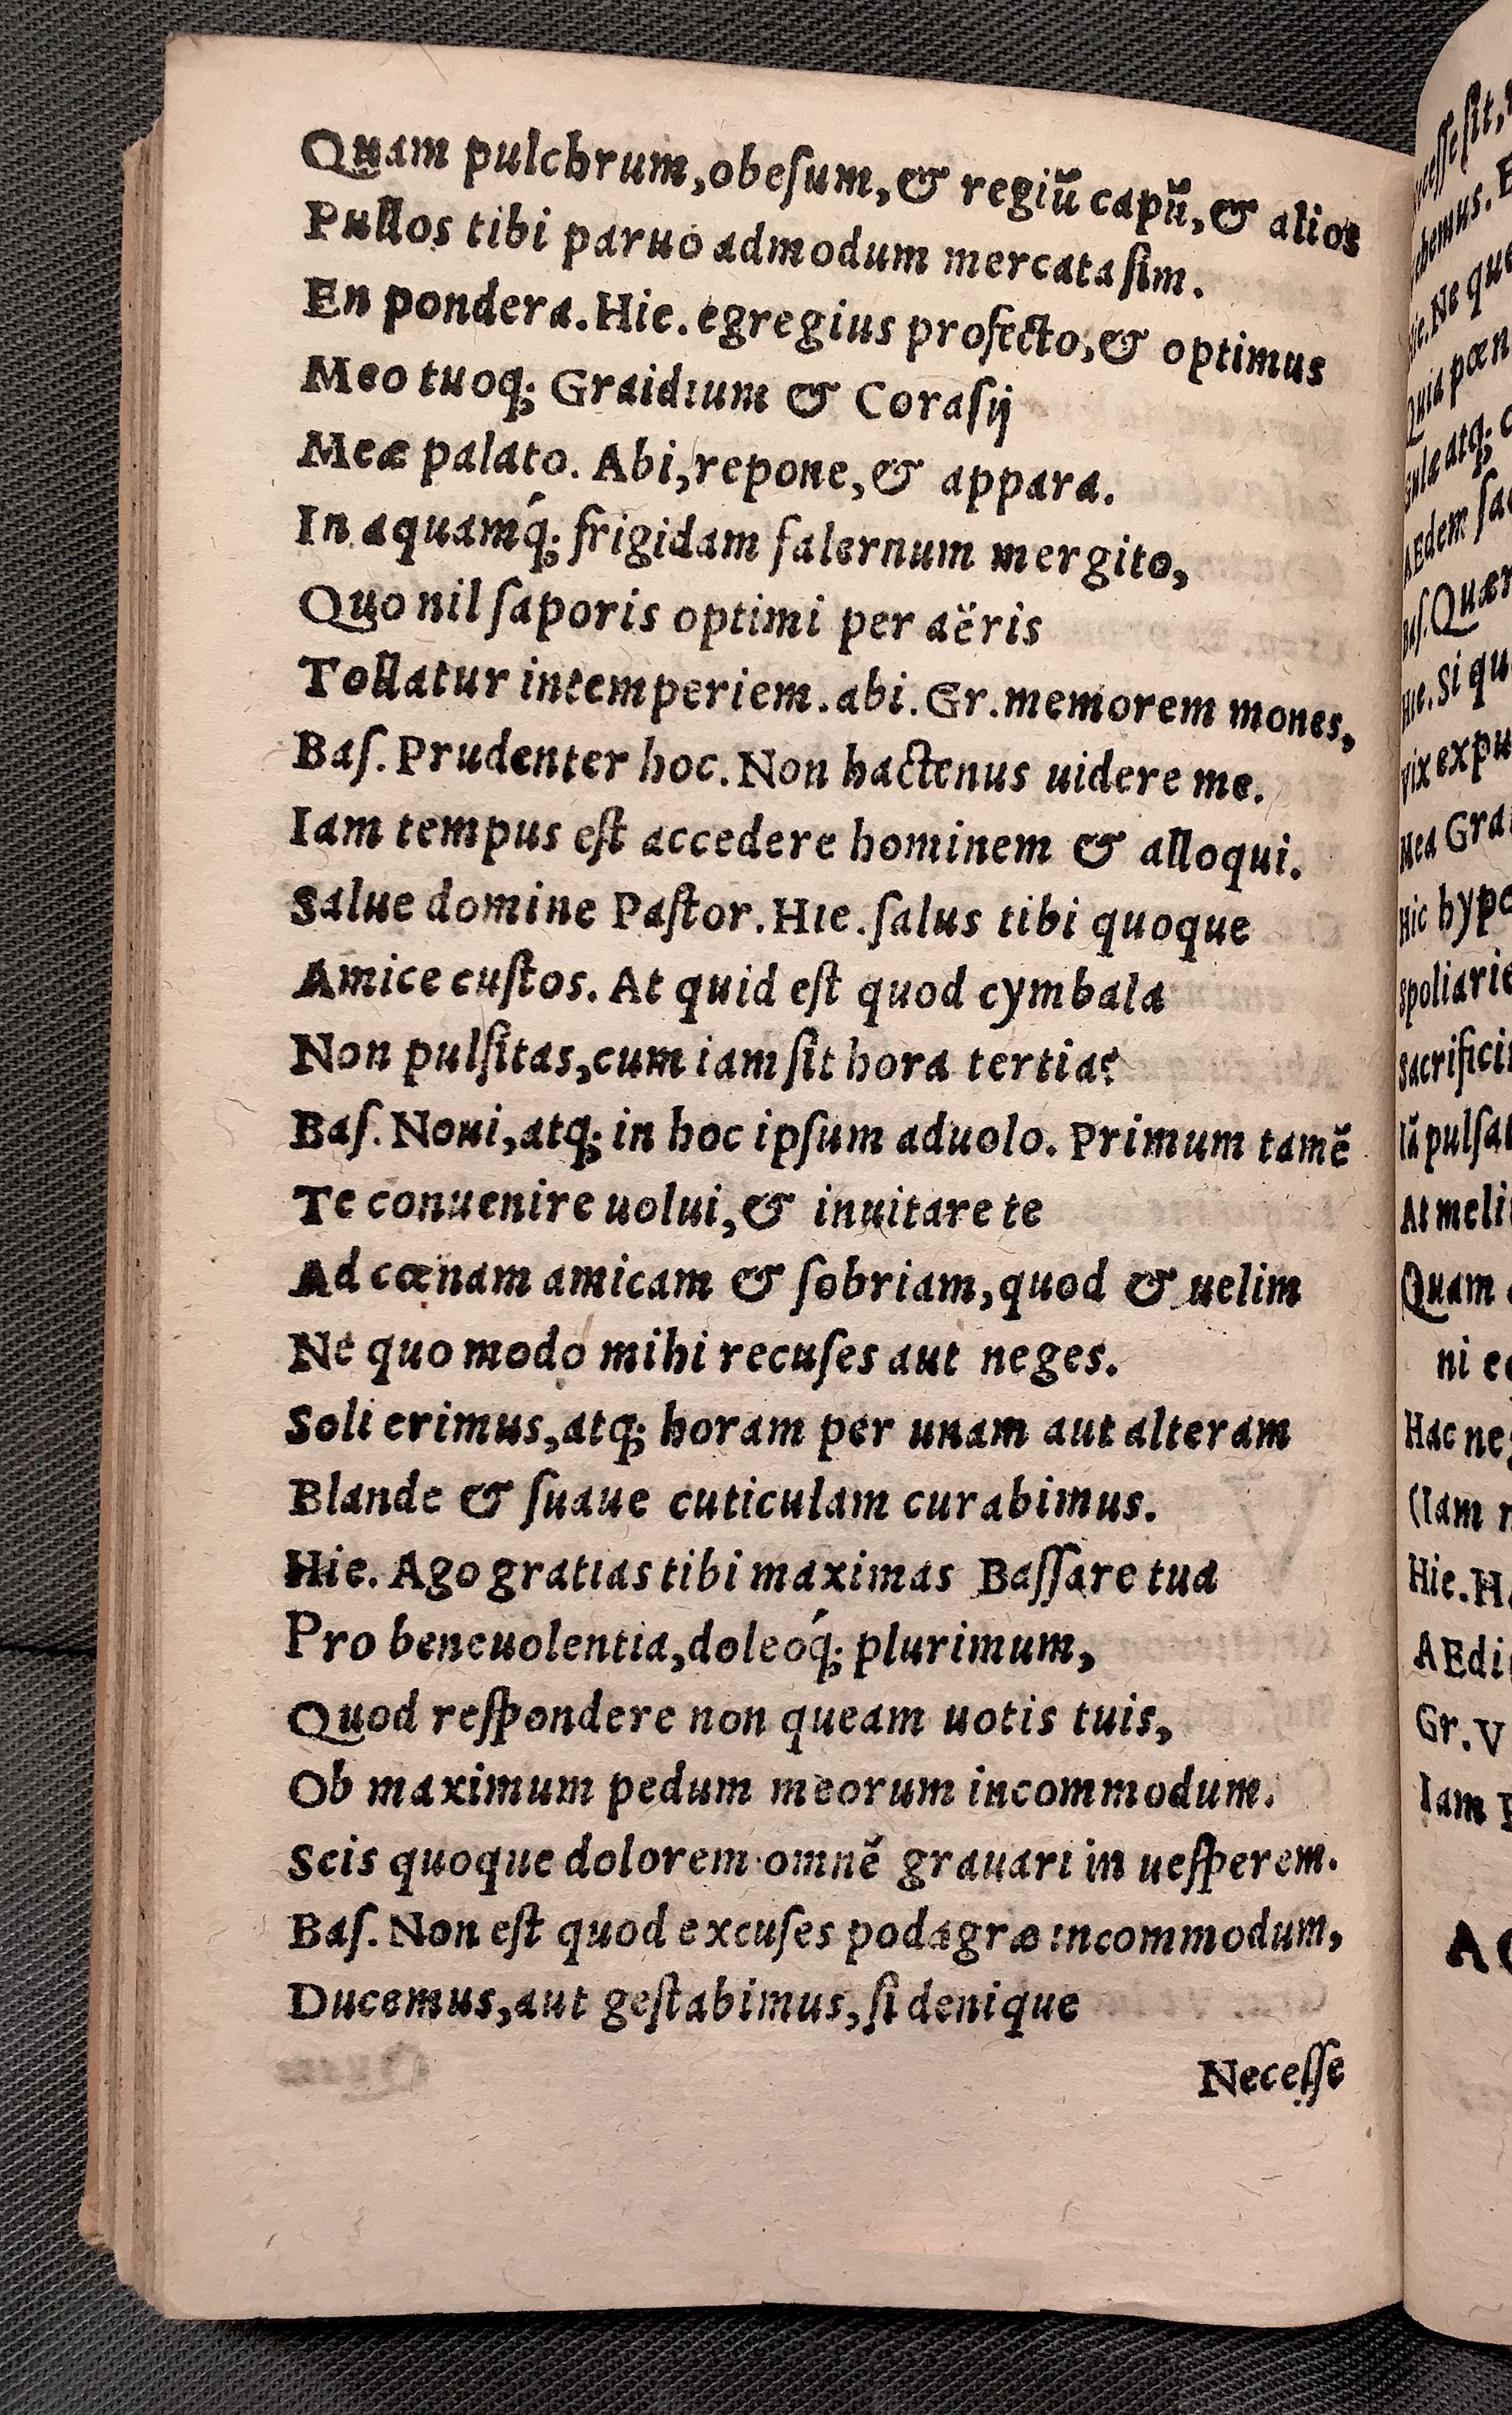 Quam pulchrum, obeſum, & regiū capū, & alios
Pullos tibi paruo admodum mercata ſim.
En pondera. Hie. egregius profecto, & optimus
Meo tuoq; Graidium & Coraſij
Meæ palato. Abi, repone, & appara.
In aquamq́; frigidam falernum mergito,
Quo nil ſaporis optimi per aëris
Tollatur intemperiem. abi. Gr. memorem mones,
Baſ. Prudenter hoc. Non hactenus uidere me.
Iam tempus eſt accedere hominem & alloqui.
Salue domine Paſtor. Hie. ſalus tibi quoque
Amice cuſtos. At quid eſt quod cymbala
Non pulſitas, cum iam ſit hora tertia?
Baſ. Noui, atq; in hoc ipſum aduolo. Primum tamē
Te conuenire uolui, & inuitare te
Ad cœnam amicam & ſobriam, quod & uelim
Ne quo modo mihi recuſes aut neges.
Soli erimus, atq; horam per unam aut alteram
Blande & ſuaue cuticulam curabimus.
Hie. Ago gratias tibi maximas Baſſare tua
Pro beneuolentia, doleoq́; plurimum,
Quod reſpondere non queam uotis tuis,
Ob maximum pedum meorum incommodum.
Scis quoque dolorem omnē grauari in ueſperem.
Baſ. Non eſt quod excuſes podagræ incommodum,
Ducemus, aut geſtabimus, ſi denique
Neceſſe
ſit,
Ne que
Quia pœn
atq;
AEdem
Baſ. Quær
Hie. Si qu
Vix expu
Mea Gra
Hic hypo
Spoliarie
Sacrifici
pulſat
At meli
Quam
ni
Hac ne
(Iam
Hie. H
AEdi
Gr. V
Iam
A